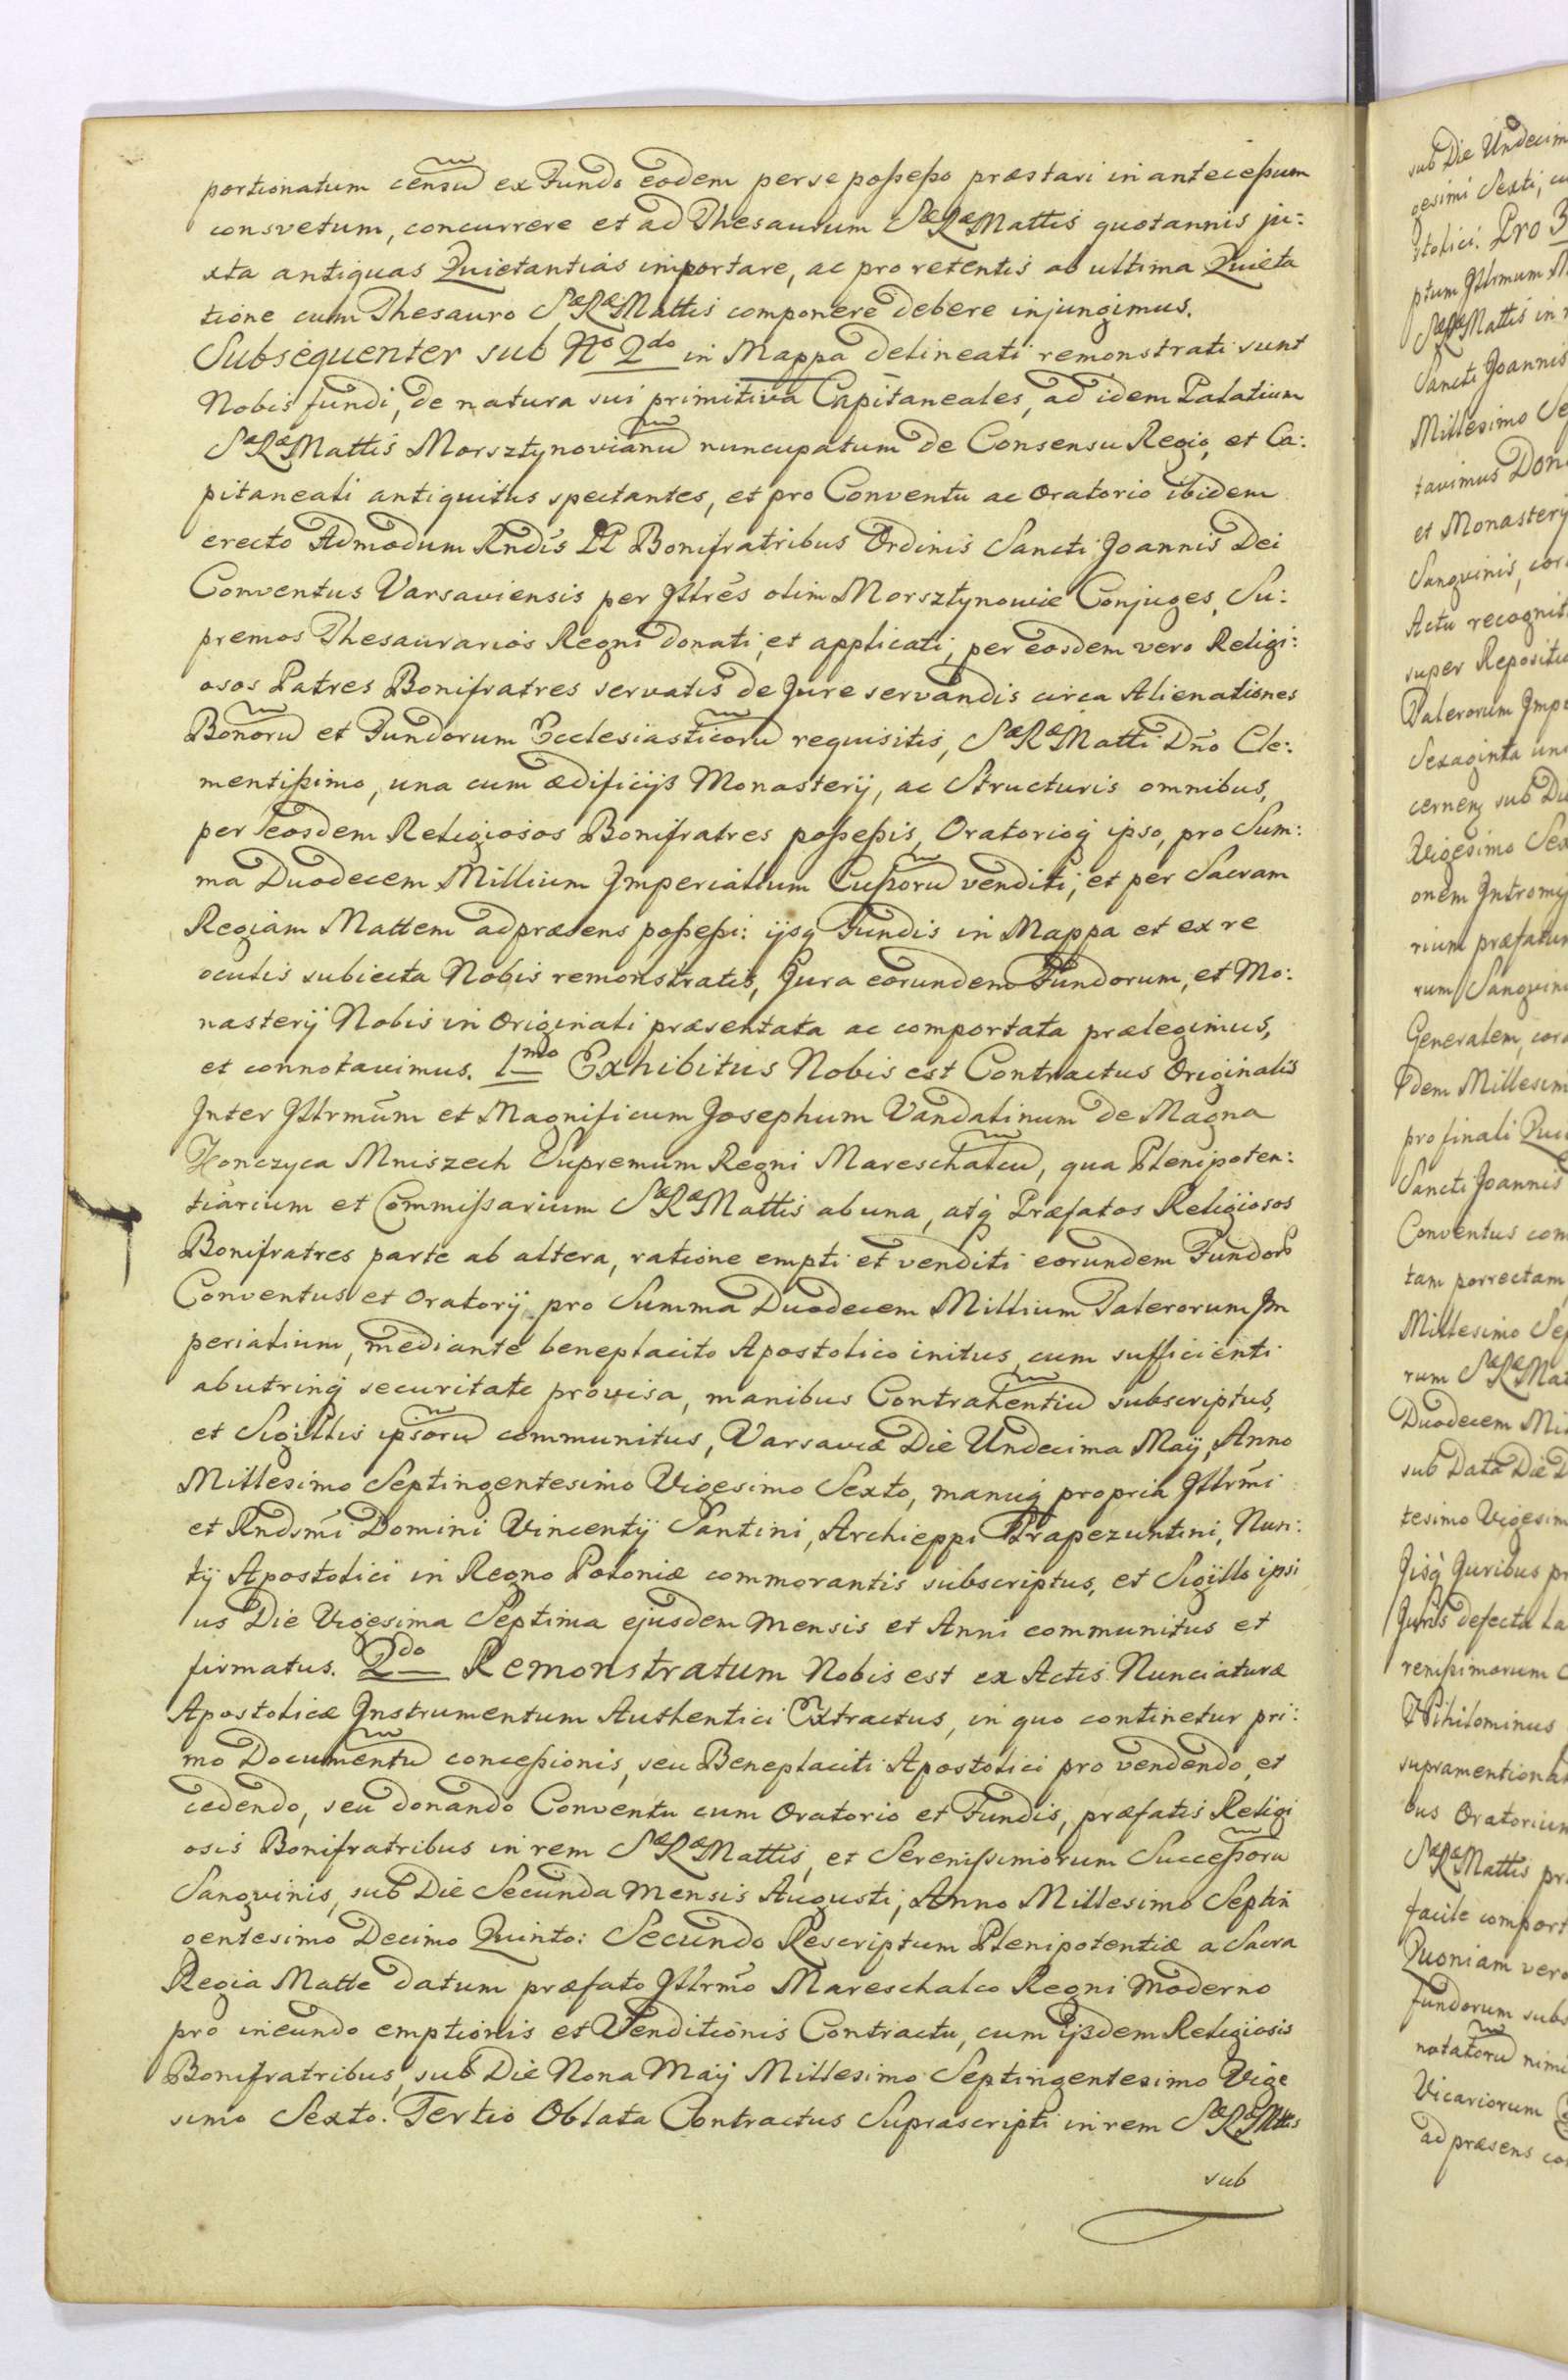 portionatum censũ ex Fundo eodem per se poßeßo præstari in anteceßum
consvetum, concurrere et ad Thesaurum SæRæMattis quotannis ju:
xta antiquas Quietantias importare, ac pro retentis ab ultima Quieta
tione cum Thesauro SæRæMattis componere debere injungimus.
Subsequenter sub No 2do in Mappa delineati remonstrati sunt
Nobis fundi, de natura sui primitiva Capitaneales, ad idem Palatium
SæRæMattis Morsztynovianũ nuncupatum de Consensu Regio, et Ca:
pitaneali antiquitus spectantes, et pro Conventu ac Oratorio ibidem
erecto Admodum Rndis PP Bonifratribus Ordinis Sancti Joannis Dei
Conventus Varsaviensis per Jllres olim Morsztynowie Conjuges, Su:
premos Thesaurarios Regni donati, et applicati, per eosdem vero Religi:
osos Patres Bonifratres servatis de Jure servandis circa Alienationes
Bonorũ et Fundorum Ecclesiasticorũ requisitis, SæRæMatti Dno Cle:
mentißimo, una cum ædificijs Monasterij, ac Structuris omnibus,
per eosdem Religiosos Bonifratres poßeßis, Oratorioq ipso, pro Sum:
ma Duodecem Millium Imperialium Cußorũ venditi, et per Sacram
Regiam Mattem ad præsens poßeßi: ijsq Fundis in Mappa et ex re
oculis subiecta Nobis remonstratis, Jura eorundem Fundorum, et Mo:
nasterij Nobis in Originali præsentata ac comportata prælegimus,
et connotavimus. 1mo Exhibitus Nobis est Contractus Originalis
Inter Jllrmum et Magnificum Josephum Vandalinum de Magna
Konczyca Mniszech Supremum Regni Mareschalcũ, qua Plenipoten:
tiarium et Commißarium SæRæMattis ab una, atq Præfatos Religiosos
Bonifratres parte ab altera, ratione empti et venditi eorundem Fundor
Conventus et Oratorij pro Summa Duodecem Millium Talerorum Jm
perialium, mediante beneplacito Apostolico initus, cum sufficienti
ab utrinq securitate provisa, manibus Contrahentiũ subscriptus,
et Sigillis ipsorũ communitus, Varsaviæ Die Undecima Maij, Anno
Millesimo Septingentesimo Vigesimo Sexto, manuq propria Jllrmi
et Rndsmi Domini Vincentij Santini, Archieppi Trapezuntini, Nun:
tij Apostolici in Regno Poloniæ commorantis subscriptus, et Sigillo ipsi
us Die Vigesima Septima ejusdem Mensis et Anni communitus et
firmatus. 2do Remonstratum Nobis est ex Actis Nunciaturæ
Apostolicæ Jnstrumentum Authentici Extractus, in quo continetur pri:
mo Documentũ conceßionis, seu Beneplaciti Apostolici pro vendendo, et
cedendo, seu donando Conventu cum Oratorio et Fundis, præfatis Religi
osis Bonifratribus in rem SæRæMattis, et Serenißimorum Succeßorũ
Sangvinis, sub Die Secunda Mensis Augusti, Anno Millesimo Septin
gentesimo Decimo Quinto: Secundo Rescriptum Plenipotentiæ a Sacra
Regia Matte datum præfato Jllrmo Mareschalco Regni Moderno
pro ineundo emptionis et Venditionis Contractu, cum ijsdem Religiosis
Bonifratribus, sub Die Nona Maij Millesimo Septingentesimo Vige
simo Sexto. Tertio Oblata Contractus Suprascripti in rem SæRæMttis
sub
sub Die Undecim
gesimi Sexti, cu
stolici. Pro 3
ptum Jllrmum M
SæRæMattis in
Sancti Joannis
Millesimo Se
tavimus Don
et Monasterij
Sangvinis, cor
Actu recognit
super Repositio
Talerorum Jmpe
Sexaginta un
cernen sub Di
Vigesimo Sex
onem Jntromi
rium præfatu
rum Sangvini
Generalem, cor
dem Millesim
pro finali Qui
Sancti Joannis
Conventus com
tam porrectam
Millesimo Sep
rum SæRæMat
Duodecem Mil
sub Data Die
tesimo Vigesim
Jisq Juribus pr
Juris defectu ta
renißimorum
Nihilominus
supramentionat
ous Oratorium
SæRæMattis pr
facile comport
Quoniam vero
fundorum subs
notatorũ nimi
Vicariorum
ad præsens co